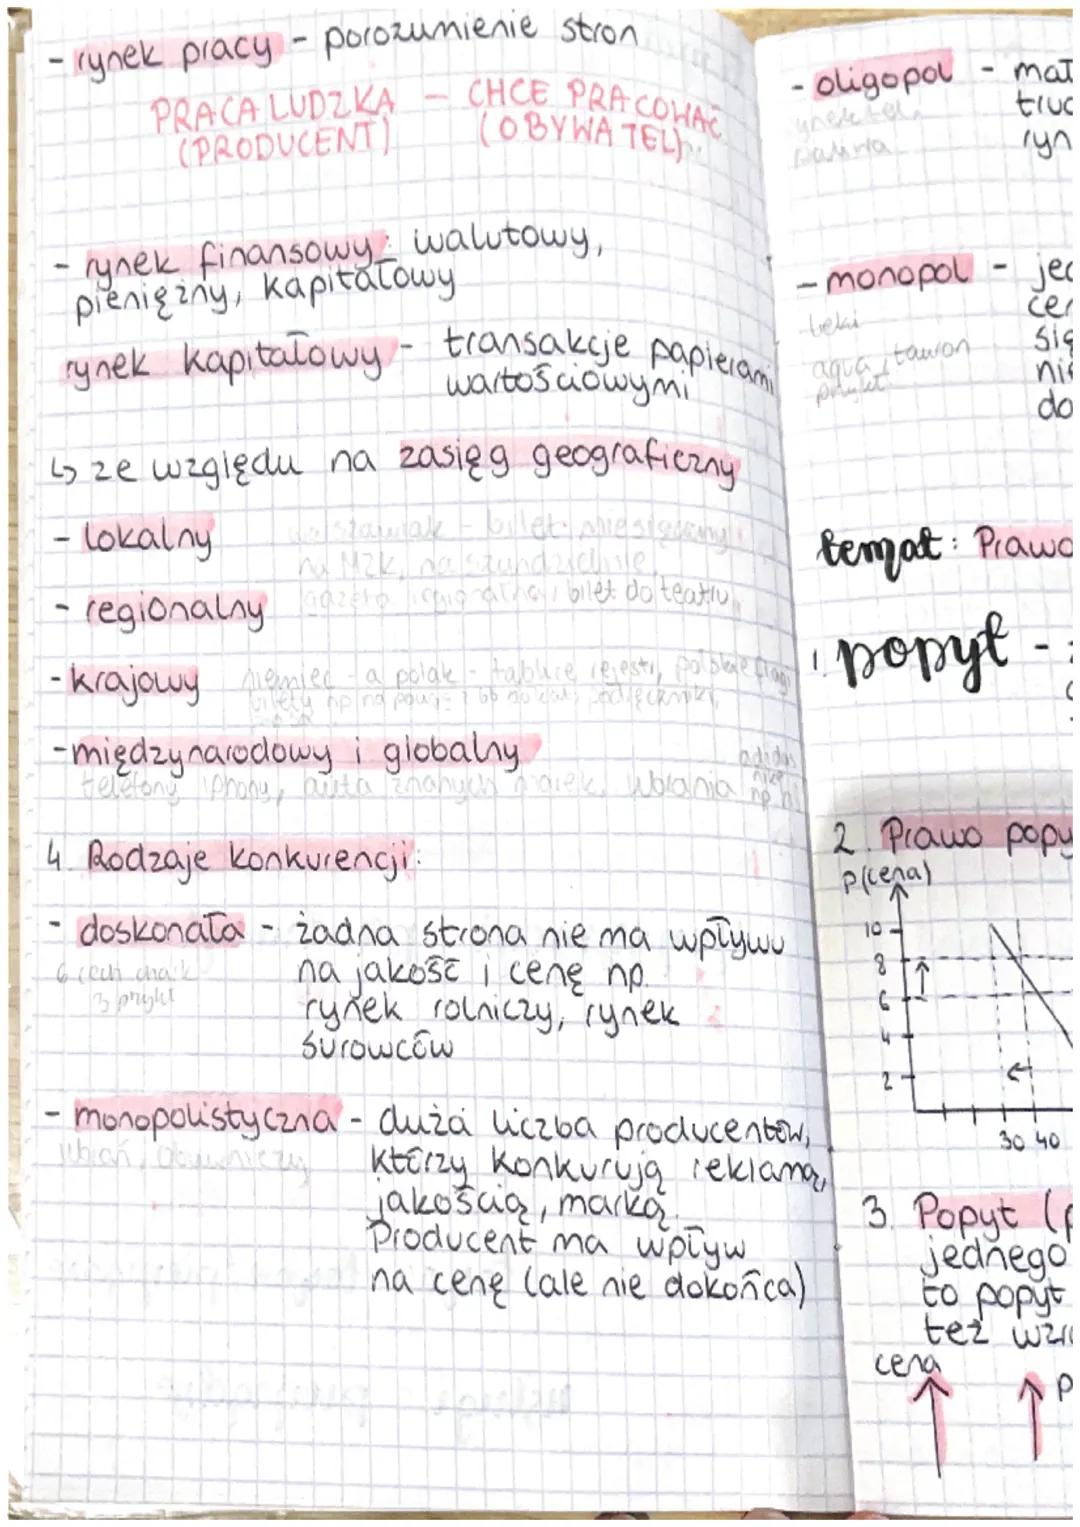 - rynek pracy - porozumienie stron
PRACA LUDZKA - CHCE PRACOWAĆ
(PRODUCENT) (OBYWATEL)
- rynek finansowy: walutowy,
pieniężny, kapitałowy
rynek kapitałowy - transakcje papierami
wartościowymi
↳ ze względu na zasięg geograficzny
- lokalny bilet miesięczny
na MZK, na
- regionalny bilet do teatru,
- krajowy niemiec - a polak - tablice rejestr, polskie flagi
bilety np na
- międzynarodowy i globalny adidas
nike
telefony iphony, auta znanych marek, ubrania np
4. Rodzaje konkurencji:
- doskonała - żadna strona nie ma wpływu
6 cech
na jakość i cenę np.
3 przykł
rynek rolniczy, rynek
surowców
- monopolistyczna - duża liczba producentów,
ubrań,
którzy konkurują reklamą,
jakością, marką.
Producent ma wpływ
na cenę (ale nie dokońca)
- oligopol - mał
rynek tel. truc
paliwa ryn
- monopol - jed
leki cen
się
aqua, tauron nie
przykł do
temat: Prawo
1. popyt -
2. Prawo popy
P(cena)
10
8
6
4
2
30 40
3. Popyt (p
jednego
to popyt
też wzro
cena
p